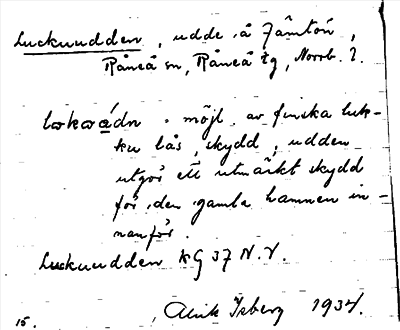 Luckuudden, udde å Jämtön,
Råneå sn, Råneå tg, Norrb. l.
lωkωádn. möjl. av finska luk-
ku lås, skydd, udden
utgör ett utmärkt skydd
för den gamla hamnen in-
nanför.
Luckuudden KG 37 N.V.
15. Alrik Isberg 1934.